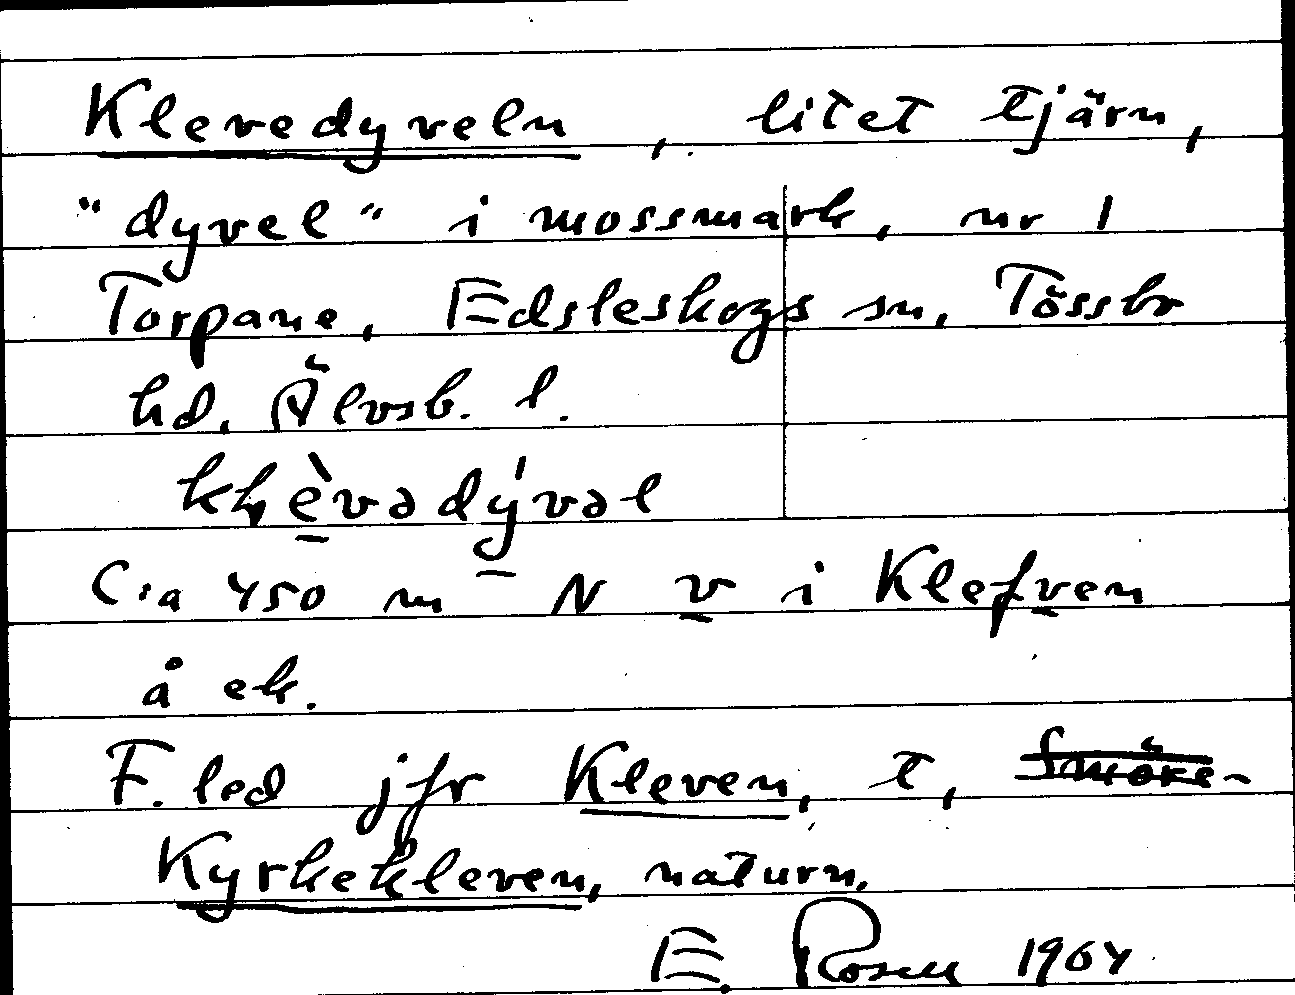 Klevedyveln, litet tjärn,
"dyvel" i mossmark, nr 1
Torpane, Edsleskogs sn, Tössbo
hd, Älvsb. l.
C:a 450 m N v i Klefven
å ek.
F. led jfr Kleven, t, Smöre-
Kyrkekleven, naturn.
E. Rosell 1964